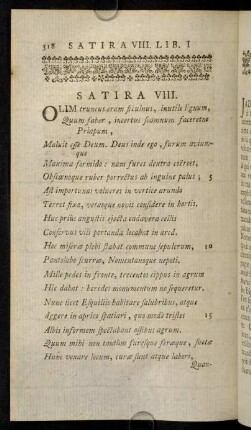 318 SATIRA VIII. LIB. I
SATIRA VIII.
OLIM truncus eram ficulnus, inutile lignum,
Quum faber, incertus scamnum faceretne
Priapum,
Maluit esse Deum. Deus inde ego, furum aviumque
que
Maxima formido: nam fures dextra coërcet,
Obscœnoque ruber porrectus ab inguine palus; 5
Ast importunas volucres in vertice arundo
Terret fixa, vetatque novis considere in hortis.
Huc prius angustis ejecta cadavera cellis
Conservus vili portanda locabat in arca.
Hoc miseræ plebi stabat commune sepulcrum, 10
Pantolabo scurræ, Nomentanoque nepoti.
Mille pedes in fronte, trecentos cippus in agrum
Hic dabat: heredes monumentum ne sequeretur.
Nunc licet Esquiliis habitare salubribus, atque
Aggere in aprico spatiari, quo modo tristes 15
Albis informem spectabant ossibus agrum.
Quum mihi non tantum furesque feræque, suetæ
Hunc vexare locum, curæ sunt atque labori,
Quan-